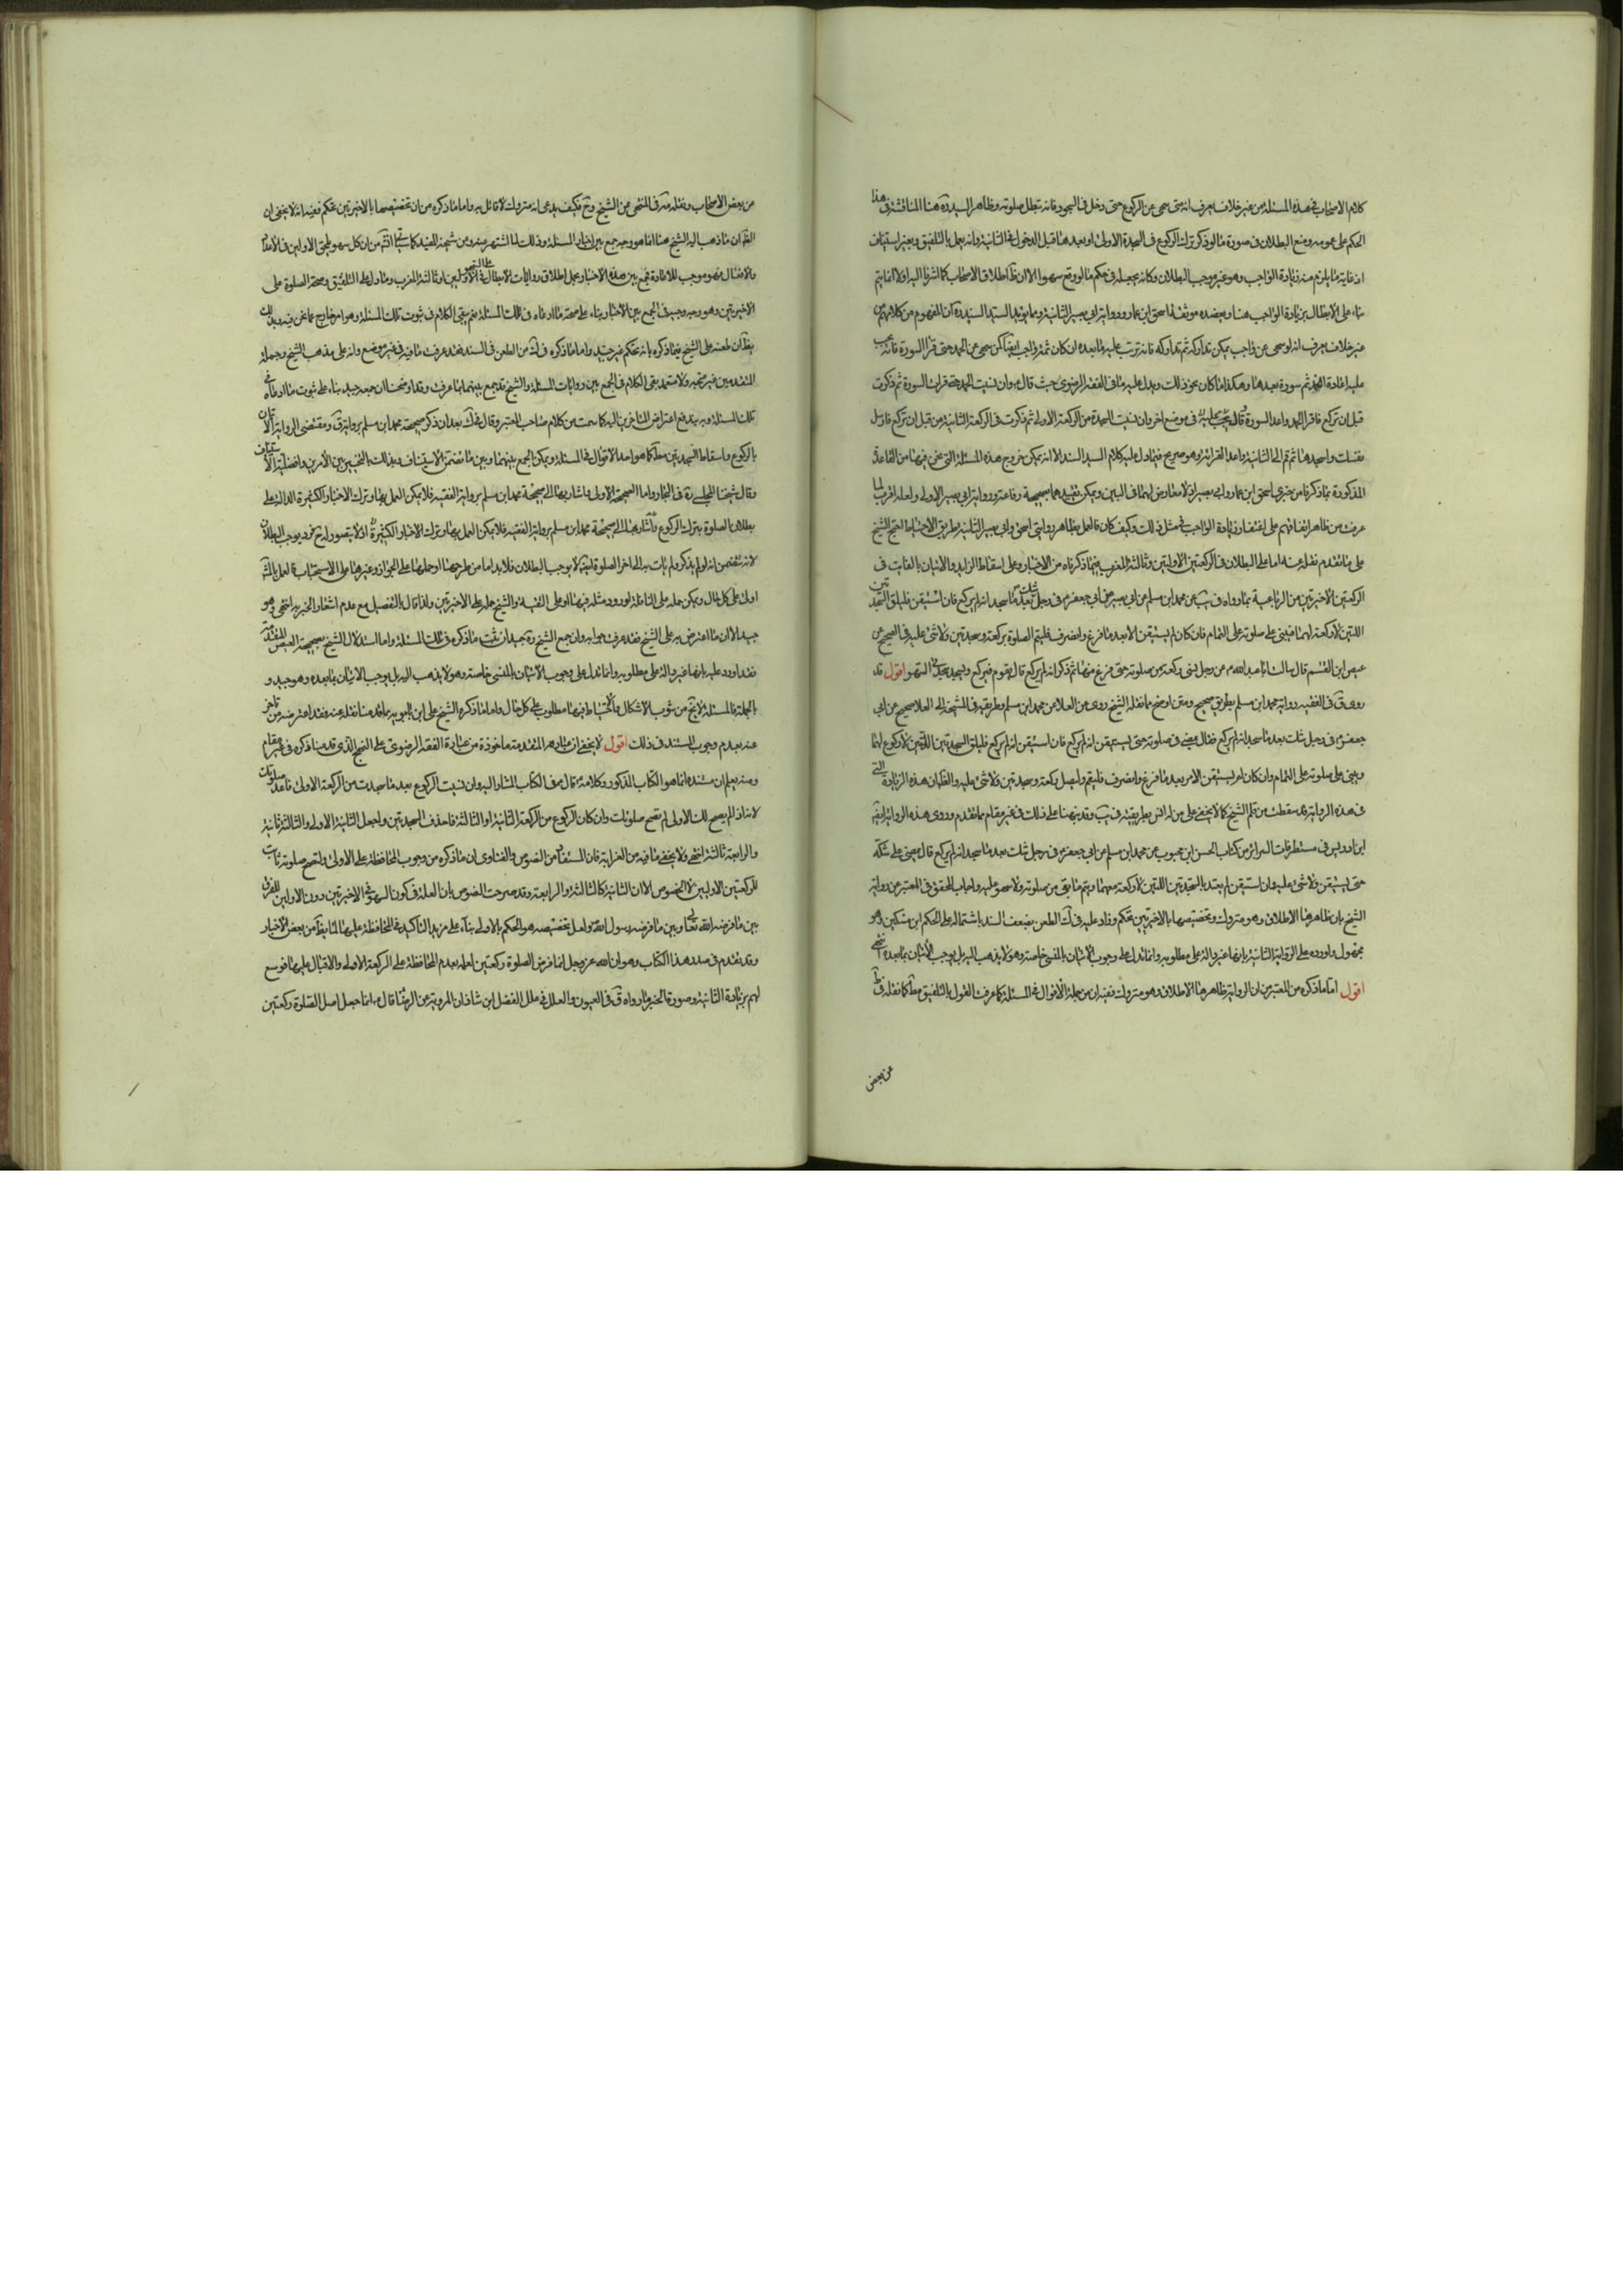 كلام الاصحاب فى هذه المسئلة من غير خلاف يعرف انه متى سهى عن الركوع حتى دخل فى السجود فانه تبطل صلوته وظاهر السيد ره هنا المناقشة فى هذا
الحكم على عمومه ومنع البطلان فى صورة ما لو ذكر ترك الركوع فى السجدة الاولى او بعدها قبل الدخول فى الثانية وانه يعمل بالتلفيق وبغير استيناف
اذ غاية ما يلزم منه زيادة الواجب وهو غير موجب البطلان وكانه يجعله فى حكم ما لو وقع سهوا الا ان اطلاق الاصحاب كما اشرنا اليه اولا انما يتم
بناء على الابطال بزيادة الواجب هنا ويعضده موثقة اسحق ابن عمار ورواية ابى بصير الثانية ومما يؤيد السيد السند ره ان المفهوم من كلامهم من
غير خلاف يعرف انه لو سهى عن واجب يمكن تداركه ثم تداركه فانه ترتب عليه ما بعده ان كان ثمة واجب ايضا كمن سهى عن الحمد حتى قرا السورة فانه يجب
عليه اعادة الحمد ثم سورة بعدها وهكذا ما كان بحو ذلك ويدل عليه ما فى الفقه الرضوى حيث قال ع وان نسيت الحمد حتى قرات السورة ثم ذكرت
قبل ان تركع فاقرا الحمد واعد السورة وقال فى موضع اخر وان نسيت السجدة من الركعة الاولى ثم ذكرت فى الركعة الثانية من قبل ان تركع فارسل
نفسك واسجدها ثم قم الى الثانية واعد القراءة وهو صريح فيما دل عليه كلام السيد السند الا انه يمكن خروج هذه المسئلة التى نحن فيها من القاعدة
المذكورة بما ذكرنا من خبرى اسحق ابن عمار وابى بصير اذ لا معارض لهما فى البين ويمكن تقييدهما بصحيحة رفاعة ورواية ابى بصير الاولى ولعله اقرب لما
عرفت من ظاهر اتفاقهم على اغتفار زيادة الواجب فى مثل ذلك وكيف كان فالعمل بظاهر روايتى اسحق وابى بصير الثانية طريق الاحتياط احتج الشيخ
على ما تقدم نقله عنه اما على البطلان فى الركعتين الاوليتين وثالثة المغرب فبما ذكرناه من الاخبار وعلى اسقاط الزايد والاتيان بالفايت فى
الركعتين الاخيرتين من الرباعية بما رواه فى يب عن محمد ابن مسلم عن ابى جعفر ع فى رجل شك بعد ما سجد انه لم يركع فان استيقن فليلق السجدتين
اللتين لا ركعة لهما فيبنى على صلوته على التمام فان كان لم يستيقن الا بعد ما فرغ وانصرف فليتم الصلوة بركعة وسجدتين ولا شئ عليه وفى الصحيح عن
عيص ابن القسم قال سالت ابا عبد الله ع عن رجل نسى ركعة من صلوته حتى فرغ منها ثم ذكر انه لم يركع قال يقوم فيركع ويسجد سجدتى السهو اقول قد
روى ق فى الفقيه رواية محمد ابن مسلم بطريق صحيح ومتن اوضح مما نقله الشيخ روى عن العلا عن محمد ابن مسلم وطريقه فى المشيخة الى العلا صحيح عن ابى
جعفر ع فى رجل شك بعد ما سجد انه لم يركع فقال يمضى فى صلوته حتى يستيقن انه لم يركع فان استيقن انه لم يركع فليلق السجدتين اللتين لا ركوع لهما
ويبنى على صلوته على التمام وان كان لم يستيقن الا من بعد ما فرغ وانصرف فليقم وليصل ركعة وسجدتين ولا شئ عليه والظ ان هذه الزيادة التى
فى هذه الرواية قد سقطت من قلم الشيخ كما لا يخفى على من له انس بطريقته فى يب وقد نبهنا على ذلك فى غير مقام مما تقدم وروى هذه الرواية ايضا
ابن ادريس فى مستطرفات السرائر من كتاب الحسن ابن محبوب عن محمد ابن مسلم عن ابى جعفر ع فى رجل شك بعد ما سجد انه لم يركع قال يمضى على شكه
حتى يستيقن ولا شئ عليه وان استيقن لم يعتد بالسجدتين اللتين لا ركعة معهما ويتم ما بقى من صلوته ولا سهو عليه واجاب المحقق فى المعتبر عن رواية
الشيخ بان ظاهرها الاطلاق وهو متروك وتخصيصها بالاخيرتين تحكم وزاد عليه فى ك الطعن بضعف السند باشتماله على الحكم ابن مسكين وهو
مجهول واورد على الرواية الثانية بانها غير دالة على مطلوبه وانما تدل على وجوب الاتيان بالمنسى خاصة وهو لا يذهب اليه بل يوجب الاتيان بما بعده انتهى
اقول اما ما ذكره من المعتبر من ان الرواية ظاهرها الاطلاق وهو متروك ففيه ان من جملة الاقوال فى المسئلة كما عرفت القول بالتلفيق مط كما نقله فى ط
عن بعض
من بعض الاصحاب ونقله فى المنتهى عن الشيخ وح فكيف يدعى انه متروك لا قائل به واما ما ذكره من ان تخصيصها بالاخيرتين تحكم ففيه انه لا يخفى ان
الظ ان ما ذهب اليه الشيخ هنا انما هو وجه جمع بين اخبار المسئلة وذلك لما اشتهر منه ومن شيخه المفيد كما سياتى انش من ان كل سهو يلحق الاوليين فى الاعداد
والافعال فهو موجب للاعادة فجمع بين هذه الاخبار بحمل اطلاق روايات الابطال على السهو فى الاوليين او ثالثة المغرب وما دل على التلفيق وصحة الصلوة على
الاخيرتين وهو وجه وجيه فى الجمع بين الاخبار بناء على صحة ما ادعاه فى تلك المسئلة نعم يبقى الكلام فى ثبوت تلك المسئلة وهو امر خارج عما نحن فيه وبذلك
يظهر ان طعنه على الشيخ فيما ذكره بانه تحكم غير جيد واما ما ذكره فى ك من الطعن فى السند فقد عرفت ما فيه فى غير موضع وانه على مذهب الشيخ وجملة
المتقدمين غير متجه ولا معتمد بقى الكلام فى الجمع بين روايات المسئلة والشيخ قد جمع بينهما بما عرفت وقد اوضحنا ان جمعه جيد بناء على ثبوت ما ادعاه فى
تلك المسئلة وبه يندفع اعتراض المتاخرين اليه كما سمعت من كلام صاحب المعتبر وقال فى ك بعد ان ذكر صحيحة محمد ابن مسلم برواية ق ومقتضى الرواية الاتيان
بالركوع واسقاط السجدتين مط كما هو احد الاقوال فى المسئلة ويمكن الجمع بينهما وبين ما تضمن الاستيناف بذلك بالتخيير بين الامرين وافضلية الاستيناف
وقال شيخنا المجلسى ره فى البحار واما الصحيحة الاولى واشار بها الى صحيحة محمد ابن مسلم برواية الفقيه فلا يمكن العمل بها وترك الاخبار الكثيرة الدالة على
بطلان الصلوة بترك الركوع واشار بها الى صحيحة محمد ابن مسلم برواية الفقيه فلا يمكن العمل بها وترك الاخبار الكثيرة اذ لا يتصور له ح فرد يوجب البطلان
لانه تضمن انه لو لم يذكر ولم يات به الى اخر الصلوة لا يوجب البطلان فلا بد اما من طرحها او حملها على الجواز وغيرها على الاستحباب فالعمل بالمش
اولى على كل حال ويمكن حمله على النافلة لورود مثله فيها او على التقية والشيخ حمله على الاخيرتين ولذا قال بالتفصيل مع عدم اشعار الخبر به انتهى وهو
جيد الا ان ما اعترض به على الشيخ فقد عرفت جوابه وان جمع الشيخ ره جيد ان ثبت ما ذكره فى تلك المسئلة واما استدلال الشيخ بصحيحة العيص المتقدمة
فقد اورد عليه بانها غير دالة على مطلوبه وانما تدل على وجوب الاتيان بالمنسى خاصة وهو لا يذهب اليه بل يوجب الاتيان بما بعده وهو جيد و
بالجملة فالمسئلة لا تخ من شوب الاشكال والاحتياط فيها مطلوب على كل حال واما ما ذكره الشيخ على ابن بابويه مما قدمنا نقله عنه فقد اعترضه من تاخر
عنه بعدم وجوب المستند فى ذلك اقول لا يخفى ان عبارته المتقدمة ماخوذة من عبارة الفقه الرضوى على النهج الذى قدمنا ذكره فى غير مقام
ومنه يعلم ان مستنده انما هو الكتاب المذكور وكلامه ع قال ع فى الكتاب المشار اليه وان نسيت الركوع بعد ما سجدت من الركعة الاولى فاعد صلوتك
لانه اذا لم يصح لك الاولى لم تصح صلوتك وان كان الركوع من الركعة الثانية او الثالثة فاحذف السجدتين واجعل الثانية الاولى والثالثة ثانية
والرابعة ثالثة انتهى ولا يخفى ما فيه من الغرابة فان المستفاد من النصوص والفتاوى ان ما ذكره من وجوب المحافظة على الاولى وتصح صلوته ثابت
للركعتين الاوليين لا بخصوص الاولى لان الثانية كالثالثة والرابعة وقد صرحت النصوص بان العلة فى كون السهو فى الاخيرتين دون الاوليين للفرق
بين ما فرضه الله تعالى وبين ما فرضه رسول الله ص ولعل تخصيصه هو الحكم بالاولى بناء على مزيد التاكيد فى المحافظة عليها لما يظهر من بعض الاخبار
وقد تقدم فى صدر هذا الكتاب وهو ان الله عز وجل انما فرض الصلوة ركعتين لعلمه بعدم المحافظة على الركعة الاولى والاقبال عليها فوسع
لهم بزيادة الثانية وصورة الخبر ما رواه ق فى العيون والعلل فى علل الفضل ابن شاذان المروية عن الرضا قال ع انما جعل اصل الصلوة ركعتين